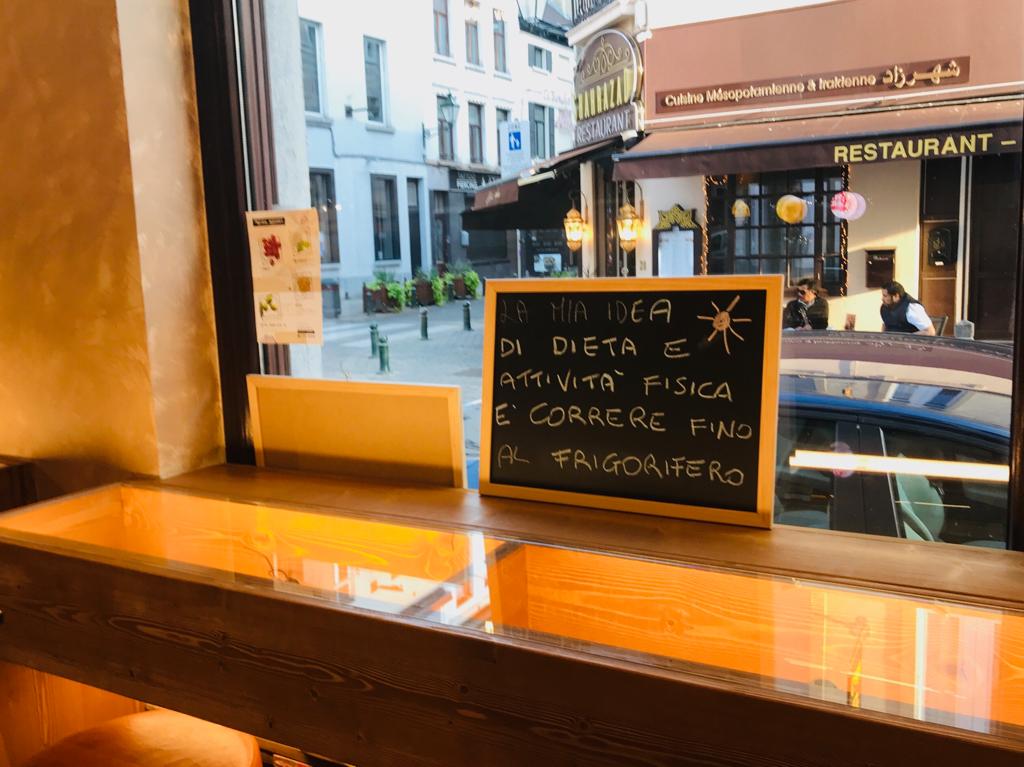 Cuisine Mésopotamienne & Irakienne شهرزاد
RESTAURANT
RESTAURANT –
LA MIA IDEA
DI DIETA E
ATTIVITÀ FISICA
E' CORRERE FINO
AL FRIGORIFERO